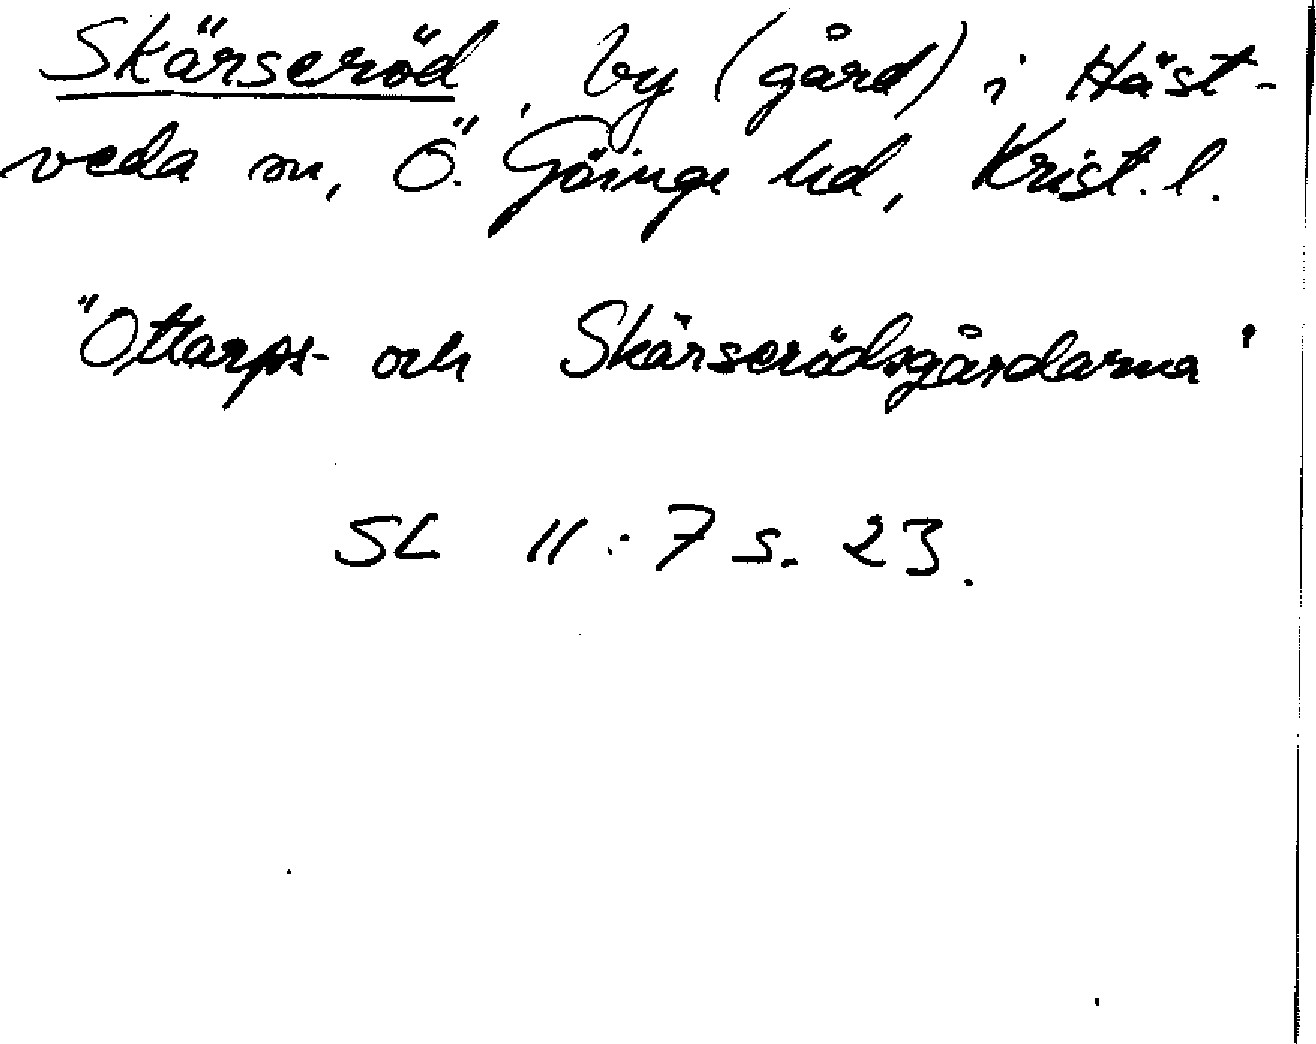 Skärseröd, by (gård) i Häst-
veda sn, Ö. Göinge hd, Krist. l.
"Ottarps- och Skärserödsgårdarna"
SL 11:7 s. 23.